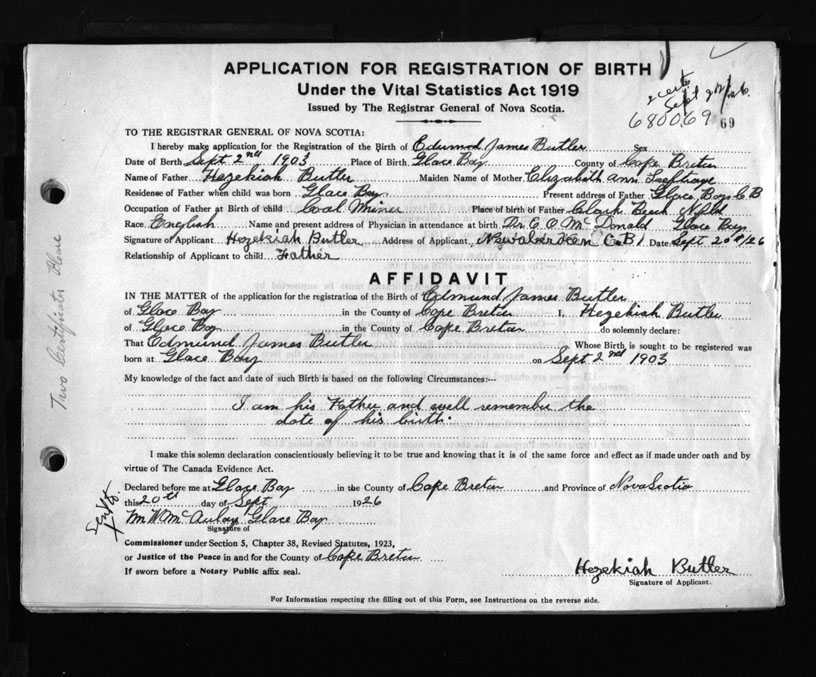 APPLICATION FOR REGISTRATION OF BIRTH
Under the Vital Statistics Act 1919
Issued by The Registrar General of Nova Scotia.
Sept
680069 69
TO THE REGISTRAR GENERAL OF NOVA SCOTIA:
I hereby make application for the Registration of the Birth of Edmund James Butler Sex
Date of Birth Sept 2nd 1903 Place of Birth Glace Bay County of Cape Breton
Name of Father Hezekiah Butler Maiden Name of Mother Elizabeth Ann
Residense of Father when child was born Glace Bay Present address of Father Glace Bay C B
Occupation of Father at Birth of child Coal Miner Place of birth of Father Clark Beach Nfld
Race English Name and present address of Physician in attendance at birth Dr E. O. McDonald Glace Bay
Signature of Applicant Hezekiah Butler Address of Applicant, New Aberdeen C.B. Date Sept 20th/26
Relationship of Applicant to child Father
AFFIDAVIT
IN THE MATTER of the application for the registration of the Birth of Edmund James Butler
of Glace Bay in the County of Cape Breton I, Hezekiah Butler
of Glace Bay in the County of Cape Breton do solemnly declare:
That Edmund James Butler Whose Birth is sought to be registered was
born at Glace Bay on Sept 2nd 1903
My knowledge of the fact and date of such Birth is based on the following Circumstances:--
I am his Father and well remember the
date of his birth.
I make this solemn declaration conscientiously believing it to be true and knowing that it is of the same force and effect as if made under oath and by
virtue of The Canada Evidence Act.
Declared before me at Glace Bay in the County of Cape Breton and Province of Nova Scotia
this 20th day of Sept 1926
Wm W McAulay Glace Bay
Signature of
Commissioner under Section 5, Chapter 38, Revised Statutes, 1923,
or Justice of the Peace in and for the County of Cape Breton
If sworn before a Notary Public affix seal.
Hezekiah Butler
Signature of Applicant.
For Information respecting the filling out of this Form, see Instructions on the reverse side.
Two Certificates Please